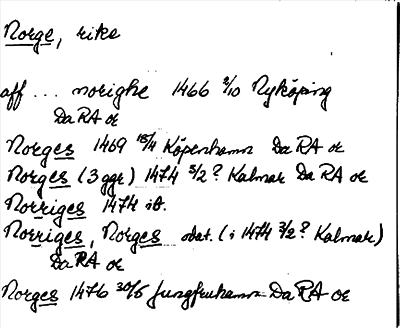 Norge, rike
aff ... norighe 1466 2/10 Nyköping
DaRA or
Norges 1469 15/4 Köpenhamn DaRA or
Norges (3 ggr) 1474 5/2? Kalmar DaRA or
Norriges 1474 ib.
Norriges, Norges odat. (i 1474 3/2? Kalmar)
DaRA or
Norges 1476 30/5 Jungfruhamn DaRA or